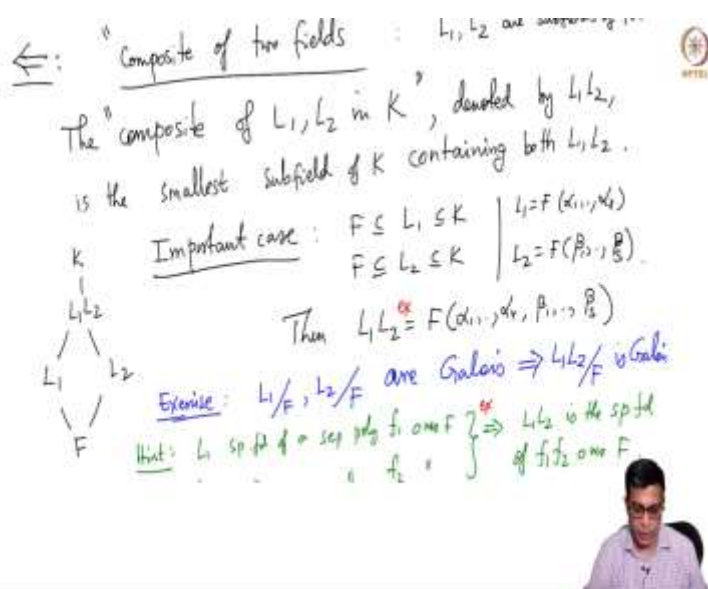 ⇐: "Composite of two fields : L₁, L₂ are
The "composite of L₁, L₂ in K", denoted by L₁L₂,
is the smallest subfield of K containing both L₁, L₂.
Important case : F ⊆ L₁ ⊆ K | L₁ = F(α₁,..,αᵣ)
F ⊆ L₂ ⊆ K | L₂ = F(β₁,..,βₛ).
Then L₁L₂ =ᵉˣ F(α₁,..,αᵣ, β₁,..,βₛ)
K
L₁L₂
L₁ L₂
F
Exercise : L₁/F, L₂/F are Galois ⇒ L₁L₂/F is Galois
Hint: L₁ sp fd of a sep poly f₁ over F } ⇒ᵉˣ L₁L₂ is the sp fd
" f₂ " of f₁f₂ over F.
NPTEL